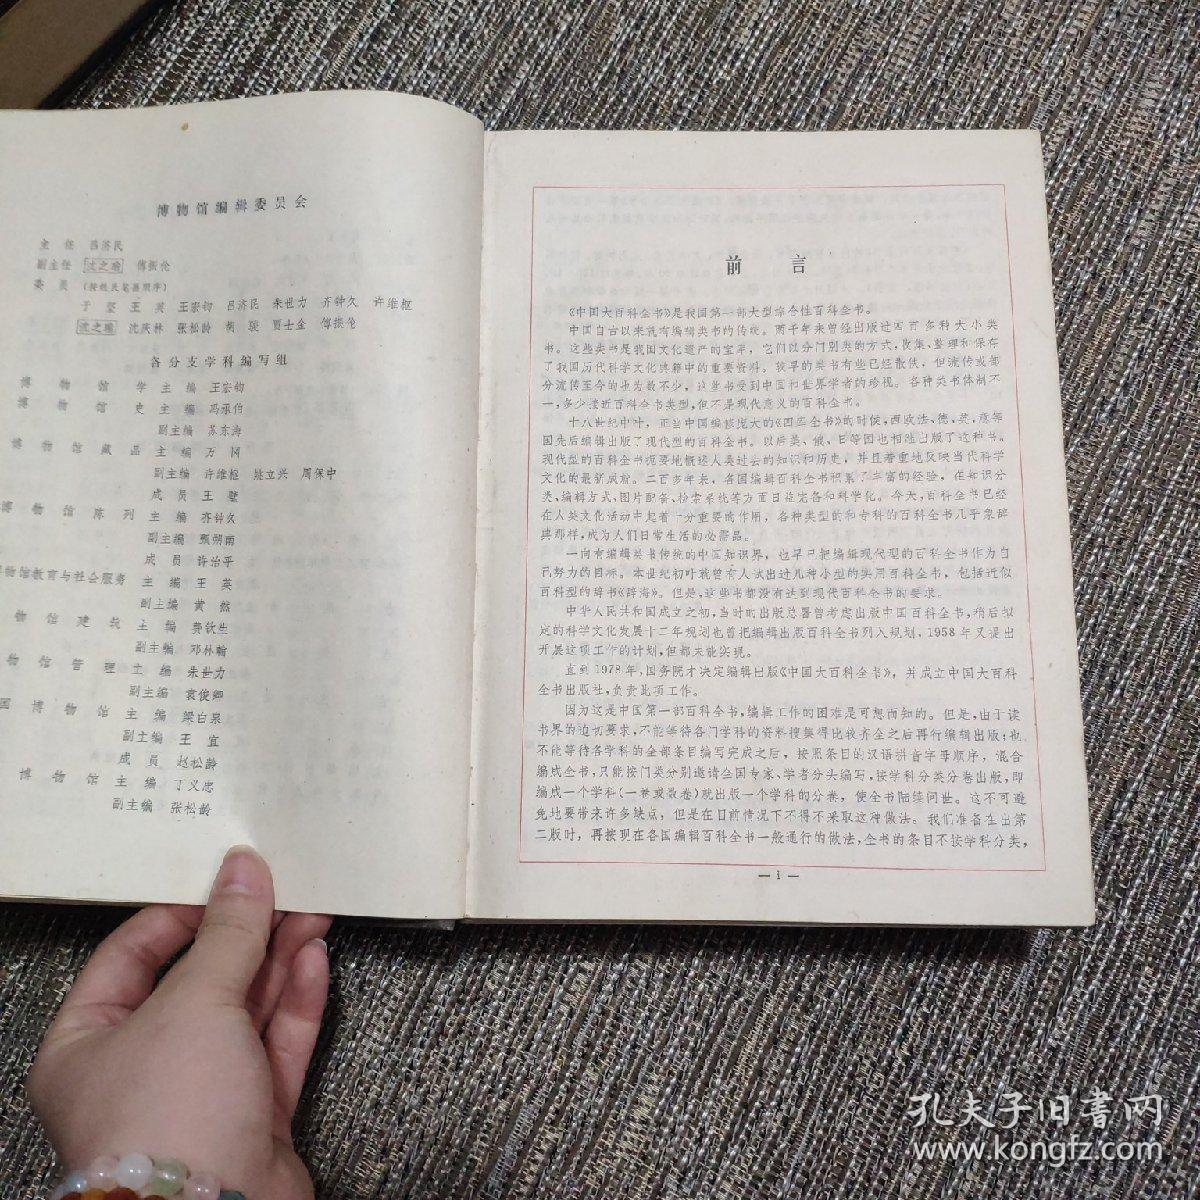 博物馆编辑委员会
主 任 吕济民
副主任 沈之瑜 傅振伦
委 员 (按姓氏笔画顺序)
于 坚 王 英 王宏钧 吕济民 朱世力 齐钟久 许维枢
沈之瑜 沈庆林 张松龄 荊 琰 贾士金 傅振伦
各分支学科编写组
博物馆学主编 王宏钧
博物馆史主编 冯承伯
副主编 苏东海
博物馆藏品主编 万 冈
副主编 许维枢 姚立兴 周保中
成员 王 壁
博物馆陈列主编 齐钟久
副主编 甄朔南
成员 许治平
物馆教育与社会服务 主编 王 英
副主编 黄 然
物馆建筑主编 费钦生
副主编 邓林翰
物馆管理主编 朱世力
副主编 袁俊卿
国博物馆主编 梁白泉
副主编 王 宜
成员 赵松龄
博物馆主编 丁义忠
副主编 张松龄
前 言
《中国大百科全书》是我国第一部大型综合性百科全书。
中国自古以来就有编辑类书的传统。两千年来曾经出版过四百多种大小类
书。这些类书是我国文化遗产的宝库,它们以分门别类的方式,收集、整理和保存
了我国历代科学文化典籍中的重要资料。较早的类书有些已经散佚,但流传或部
分流传至今的也为数不少,这些书受到中国和世界学者的珍视。各种类书体制不
一,多少接近百科全书类型,但不是现代意义的百科全书。
十八世纪中叶,正当中国编修庞大的《四库全书》的时候,西欧法、德、英、意等
国先后编辑出版了现代型的百科全书。以后美、俄、日等国也相继出版了这种书。
现代型的百科全书扼要地概述人类过去的知识和历史,并且着重地反映当代科学
文化的最新成就。二百多年来,各国编辑百科全书积累了丰富的经验,在知识分
类、编辑方式、图片配备、检索系统等方面日益完备和科学化。今天,百科全书已经
在人类文化活动中起着十分重要的作用,各种类型的和专科的百科全书几乎象辞
典那样,成为人们日常生活的必需品。
一向有编辑类书传统的中国知识界,也早已把编辑现代型的百科全书作为自
己努力的目标。本世纪初叶就曾有人试出过几种小型的实用百科全书,包括近似
百科型的辞书《辞海》。但是,这些书都没有达到现代百科全书的要求。
中华人民共和国成立之初,当时的出版总署曾考虑出版中国百科全书,稍后拟
定的科学文化发展十二年规划也曾把编辑出版百科全书列入规划,1958年又提出
开展这项工作的计划,但都未能实现。
直到1978年,国务院才决定编辑出版《中国大百科全书》,并成立中国大百科
全书出版社,负责此项工作。
因为这是中国第一部百科全书,编辑工作的困难是可想而知的。但是,由于读
书界的迫切要求,不能等待各门学科的资料搜集得比较齐全之后再行编辑出版;也
不能等待各学科的全部条目编写完成之后,按照条目的汉语拼音字母顺序,混合
编成全书,只能按门类分别邀请全国专家、学者分头编写,按学科分类分卷出版,即
编成一个学科(一卷或数卷)就出版一个学科的分卷,使全书陆续问世。这不可避
免地要带来许多缺点,但是在目前情况下不得不采取这种做法。我们准备在出第
二版时,再按现在各国编辑百科全书一般通行的做法,全书的条目不按学科分类,
— i —
孔夫子旧书网
www.kongfz.com